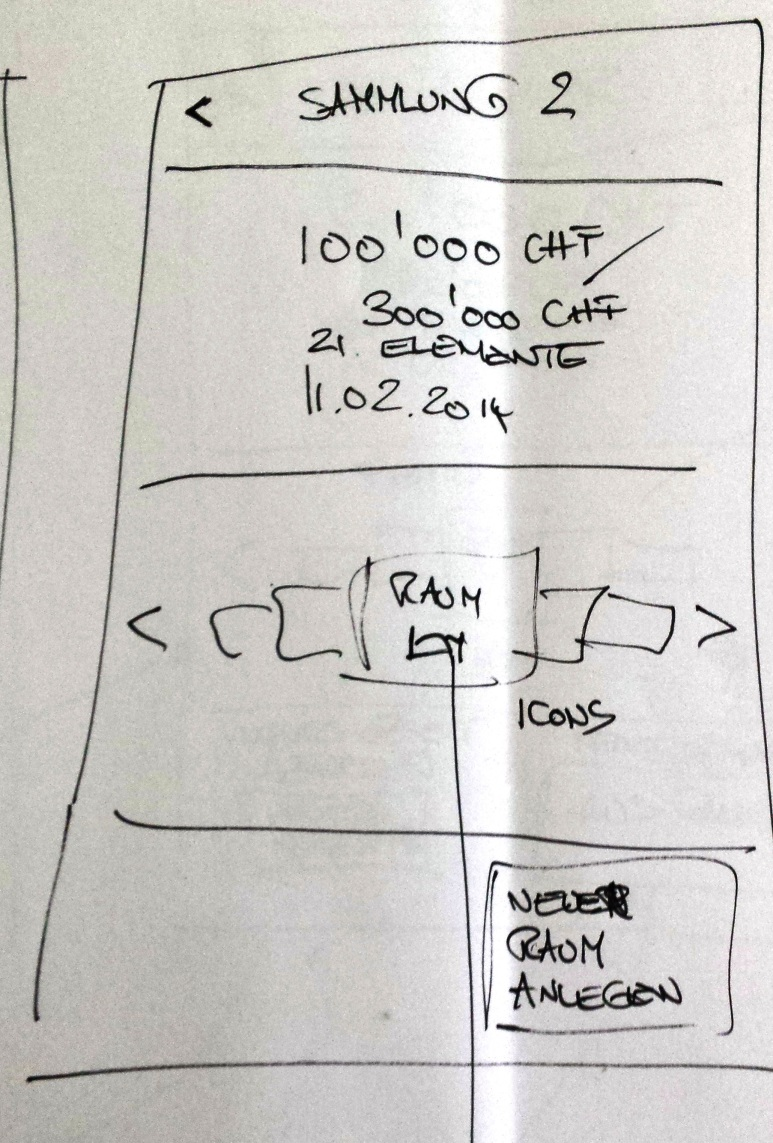 < SAMMLUNG 2
100'000 CHF /
300'000 CHF
21. ELEMENTE
11.02.2014
< RAUM >
ICONS
NEUER
RAUM
ANLEGEN